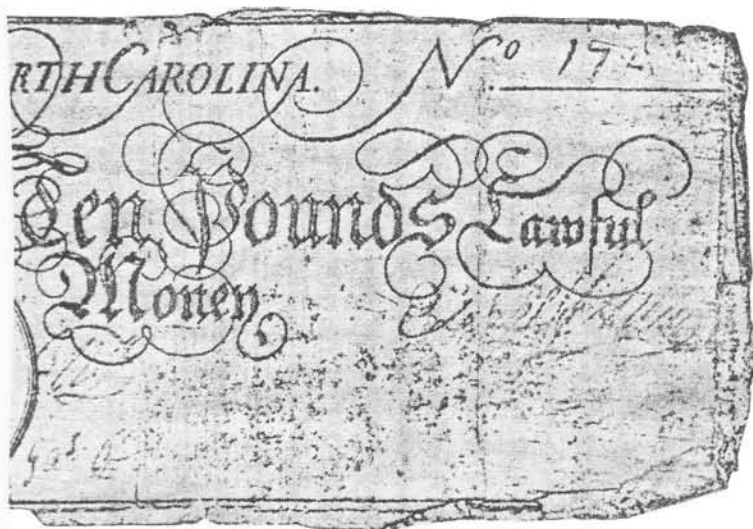 RTH CAROLINA. No. 17
Ten Pounds Lawful
Money